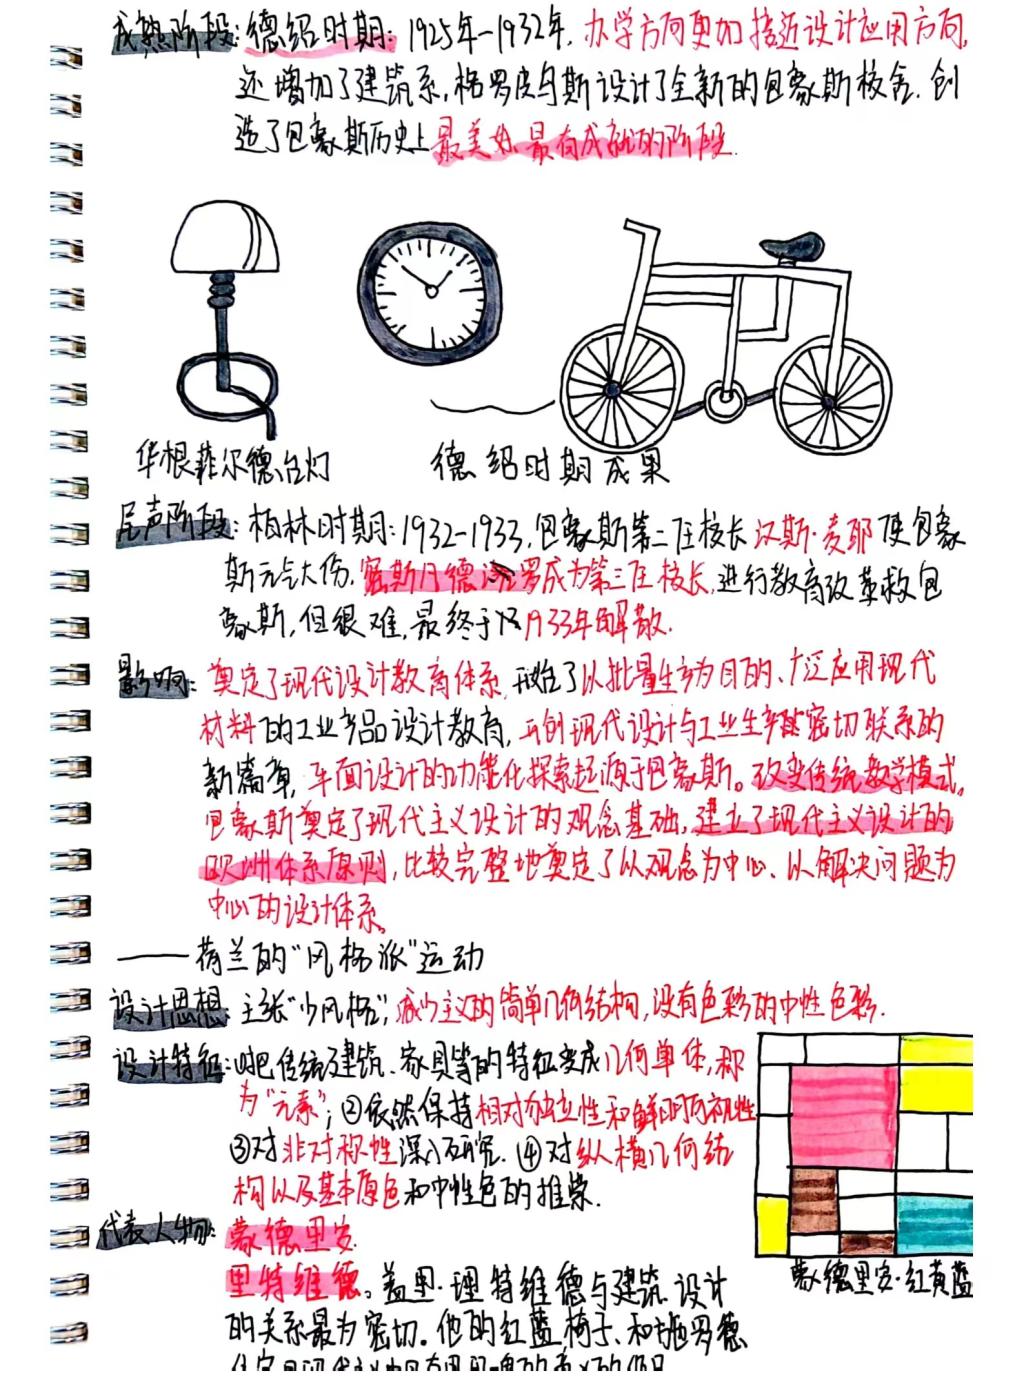 成熟阶段:德绍时期:1925年-1932年,办学方向更加接近设计应用方向,
还增加了建筑系,格罗皮乌斯设计了全新的包豪斯校舍.创
造了包豪斯历史上最美好最有成就的阶段.
华根菲尔德台灯
德绍时期成果
尾声阶段:柏林时期:1932-1933,包豪斯第二任校长汉斯·麦耶使包豪
斯元气大伤,密斯凡德 罗成为第三任校长,进行教育改革救包
豪斯,但很难,最终于 1933年解散.
影响:奠定了现代设计教育体系,形成了以批量生产为目的、广泛应用现代
材料的工业产品设计教育,开创现代设计与工业生产 密切联系的
新篇章,平面设计的功能化探索起源于包豪斯。改变传统教学模式。
包豪斯奠定了现代主义设计的观念基础,建立了现代主义设计的
欧洲体系原则,比较完整地奠定了以观念为中心、以解决问题为
中心的设计体系。
——荷兰的"风格派"运动
设计思想:主张"少风格",减少主义的简单几何结构,没有色彩的中性色彩.
设计特征:①把传统建筑、家具等的特征变成几何单体,称
为"元素";②依然保持相对独立性和鲜明可视性
③对非对称性深入研究.④对纵横几何结
构以及基本原色和中性色的推崇.
代表人物:蒙德里安
里特维德。盖里·理特维德与建筑设计
的关系最为密切。他的红蓝椅子、和施罗德
蒙德里安·红黄蓝